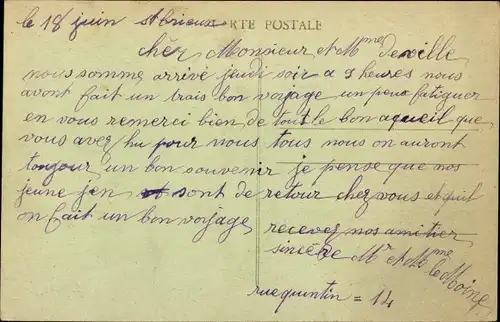 le 18 juin St brieux CARTE POSTALE
chèr Monsieur et Mme deville
nous somme arrivé jeudi soir a 9 heures nous
avont fait un trais bon voyage un peux fatiguer
en vous remerci bien de tout le bon aqueil que
vous avez hu pour nous tous nous on auront
toujour un bon souvenir je pense que nos
jeune jen sont de retour chez vous et quil
on fait un bon voyage
recevez nos amitier
sincère Mr et Mme le Moine
rue quentin = 14